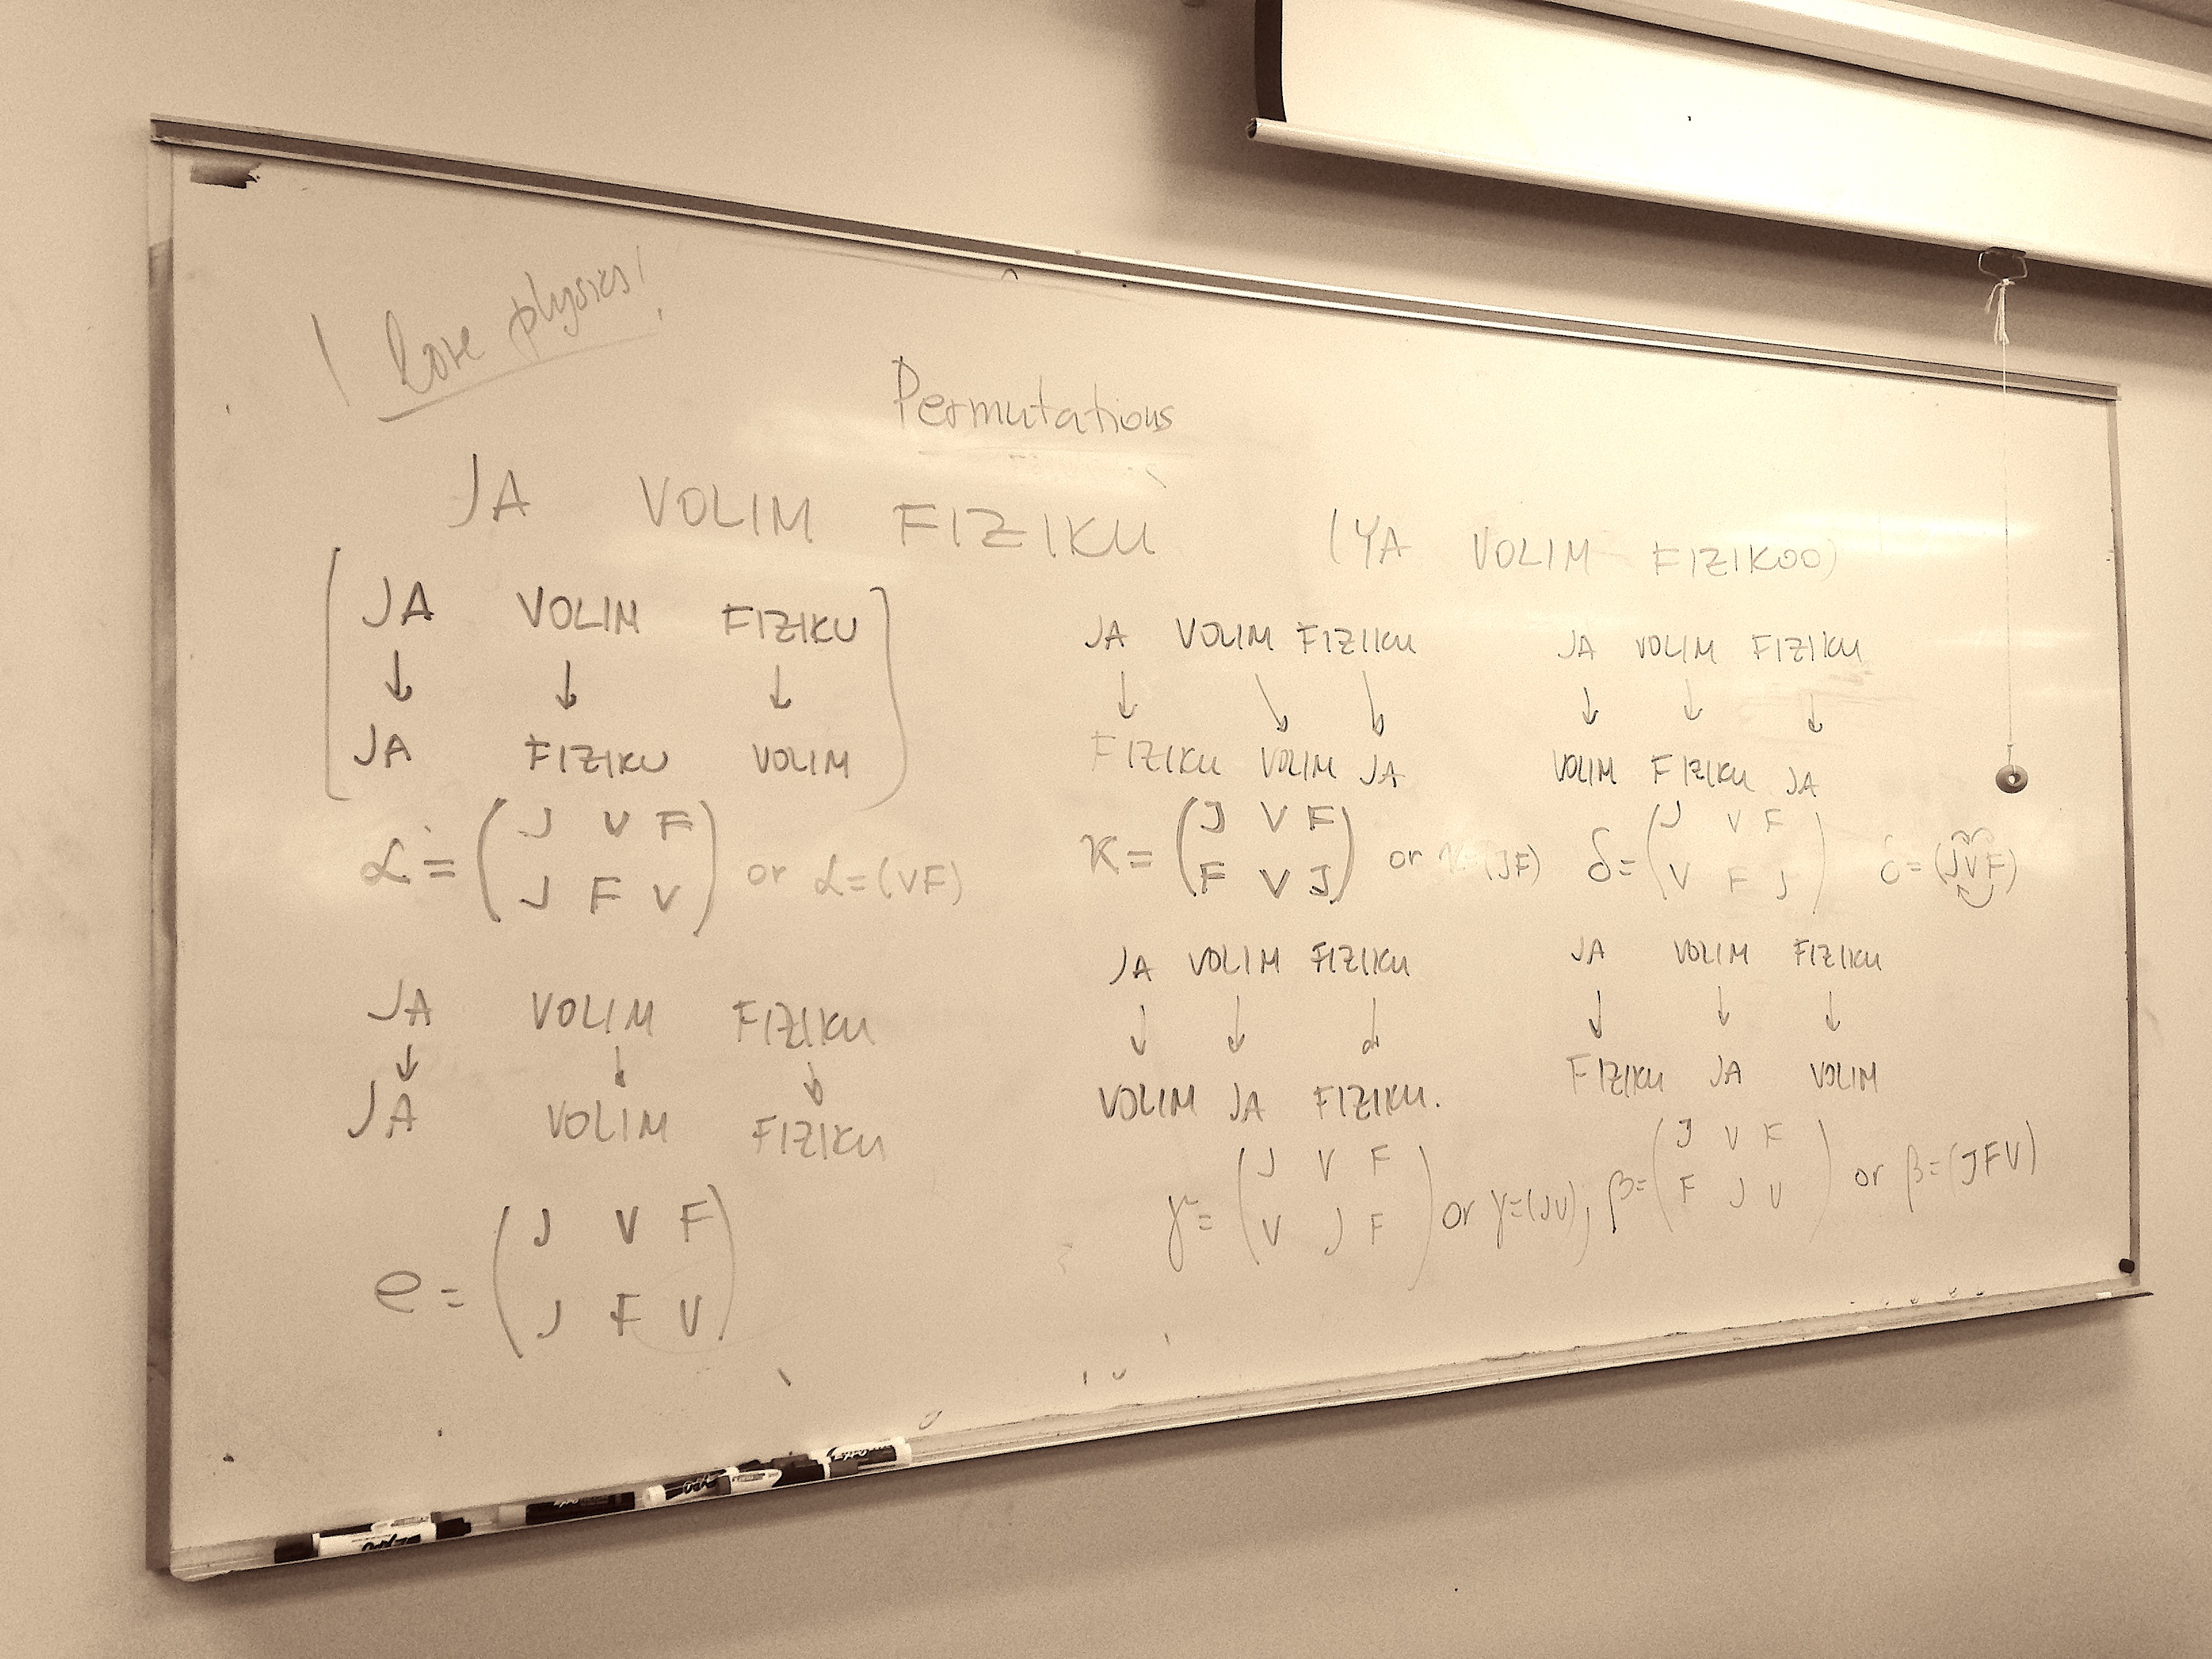 I love physics!
Permutations
JA VOLIM FIZIKU (YA VOLIM FIZIKOO)
JA VOLIM FIZIKU
↓ ↓ ↓
JA FIZIKU VOLIM
α = (J V F
J F V) or α=(VF)
JA VOLIM FIZIKU
↓ ↓ ↓
JA VOLIM FIZIKU
e = (J V F
J F V)
JA VOLIM FIZIKU
↓ ↓ ↓
FIZIKU VOLIM JA
κ = (J V F
F V J) or κ=(JF)
JA VOLIM FIZIKU
↓ ↓ ↓
VOLIM FIZIKU JA
δ = (J V F
V F J) δ=(JVF)
JA VOLIM FIZIKU
↓ ↓ ↓
VOLIM JA FIZIKU.
γ = (J V F
V J F) or γ=(JV);
JA VOLIM FIZIKU
↓ ↓ ↓
FIZIKU JA VOLIM
β = (J V F
F J V) or β=(JFV)